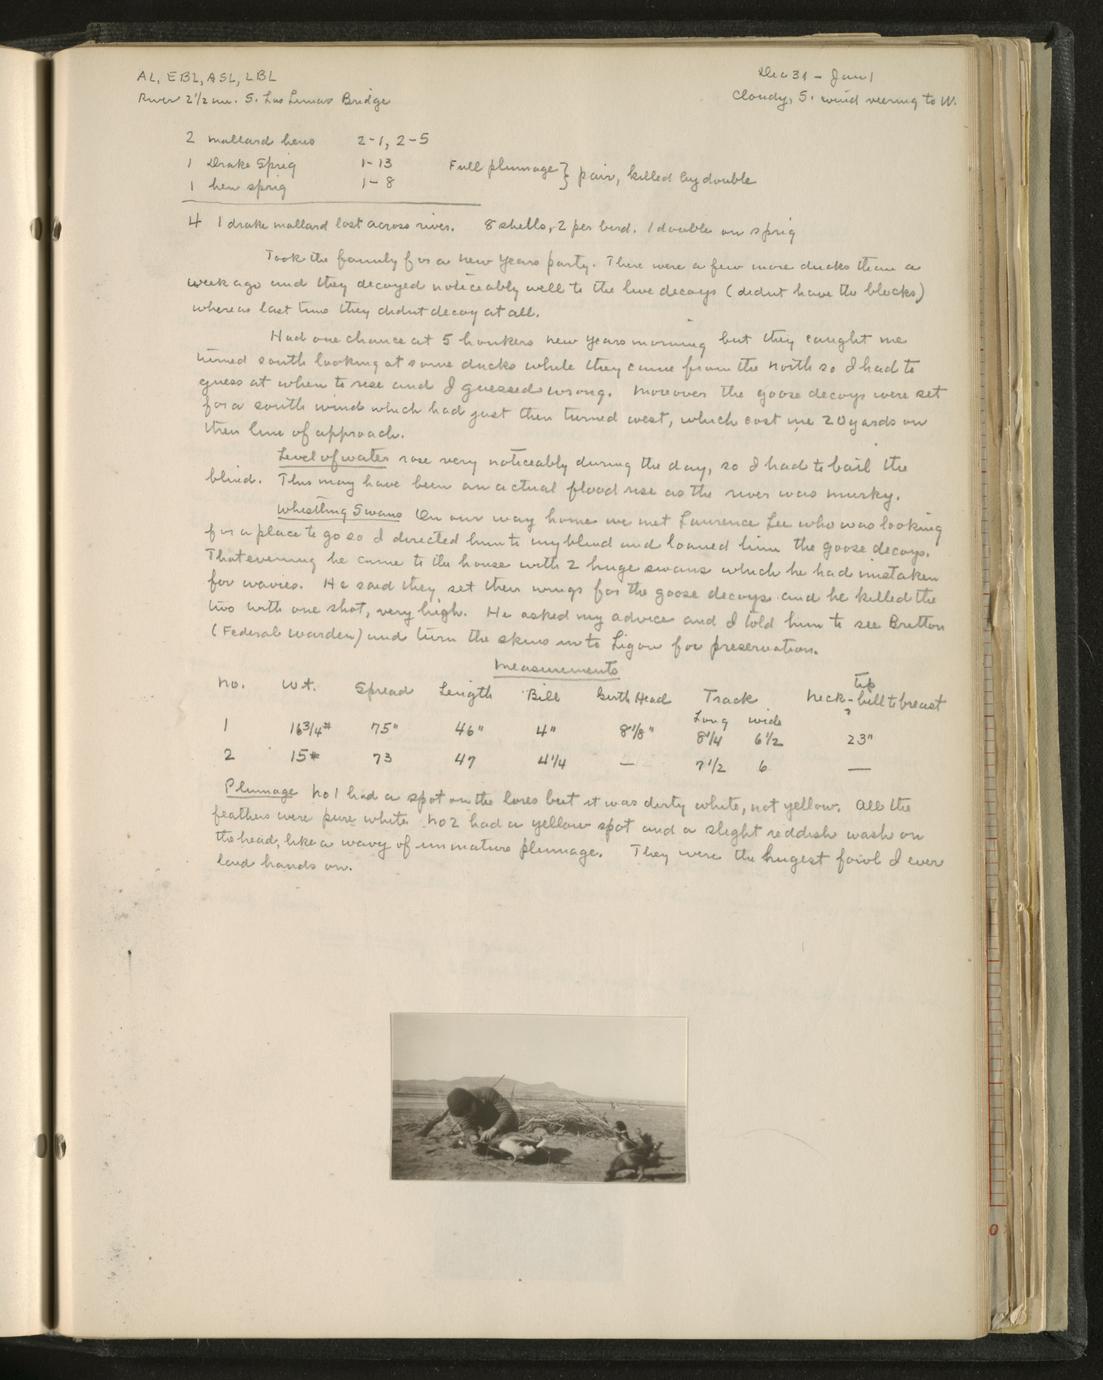 AL, EBL, ASL, LBL
Dec 31 - Jan 1
River 2 1/2 mi. S. Los Lunas Bridge
Cloudy, S. wind veering to W.
2 mallard hens 2-1, 2-5
1 Drake Sprig 1-13 Full plumage } pair, killed by double
1 hen sprig 1-8
4 1 drake mallard lost across river. 8 shells, 2 per bird. 1 double on sprig
Took the family for a New Years party. There were a few more ducks than a
week ago and they decoyed noticeably well to the live decoys (didnt have the blocks)
whereas last time they didnt decoy at all.
Had one chance at 5 honkers New Years morning but they caught me
turned south looking at some ducks while they came from the north so I had to
guess at when to rise and I guessed wrong. Moreover the goose decoys were set
for a south wind which had just then turned west, which cost me 20 yards on
their line of approach.
Level of water rose very noticeably during the day, so I had to bail the
blind. This may have been an actual flood rise as the river was murky.
Whistling Swans On our way home we met Laurence Lee who was looking
for a place to go so I directed him to my blind and loaned him the goose decoys.
That evening he came to the house with 2 huge swans which he had mistaken
for wavies. He said they set their wings for the goose decoys and he killed the
two with one shot, very high. He asked my advice and I told him to see Bretton
(Federal warden) and turn the skins in to Ligon for preservation.
Measurements
No. Wt. Spread Length Bill Girth Head Track Neck - tip bill to breast
Long wide ?
1 16 3/4# 75" 46" 4" 8 1/8" 8 1/4 6 1/2 23"
2 15# 73 47 4 1/4 — 7 1/2 6 —
Plumage No 1 had a spot on the lores but it was dirty white, not yellow. All the
feathers were pure white. No 2 had a yellow spot and a slight reddish wash on
the head, like a wavy of immature plumage. They were the hugest fowl I ever
laid hands on.